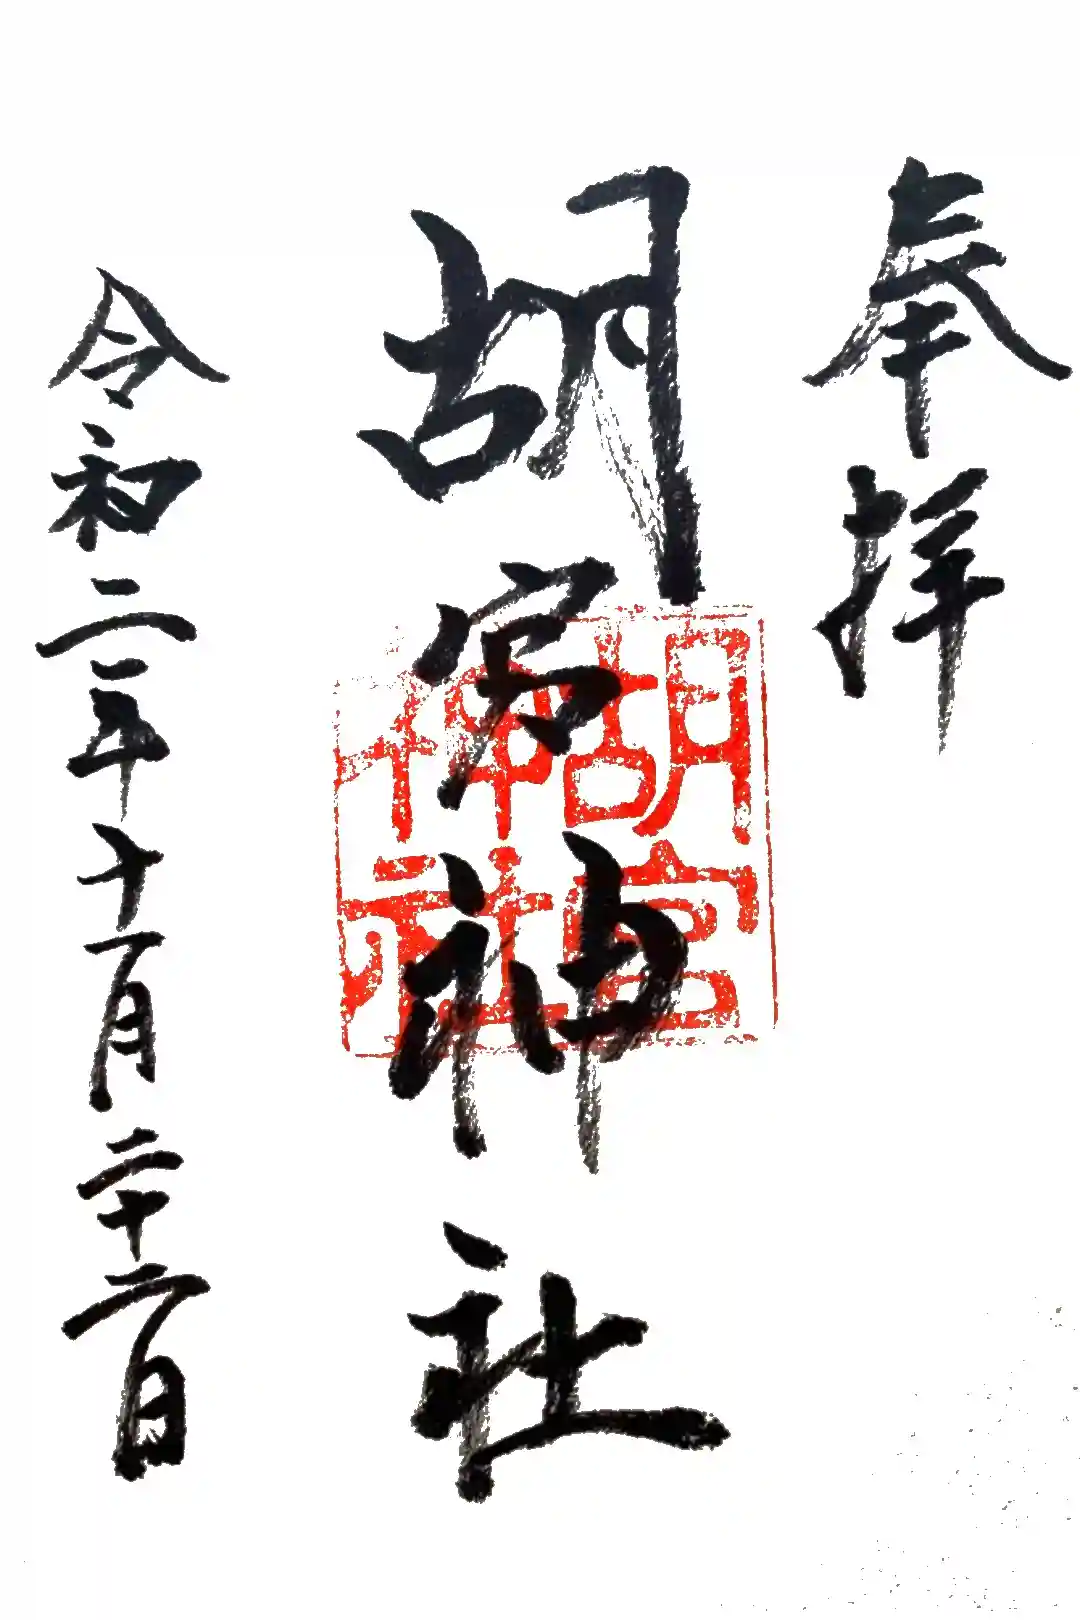 奉拝
胡宮神社
令和二年十月二十二日
胡宮
神社